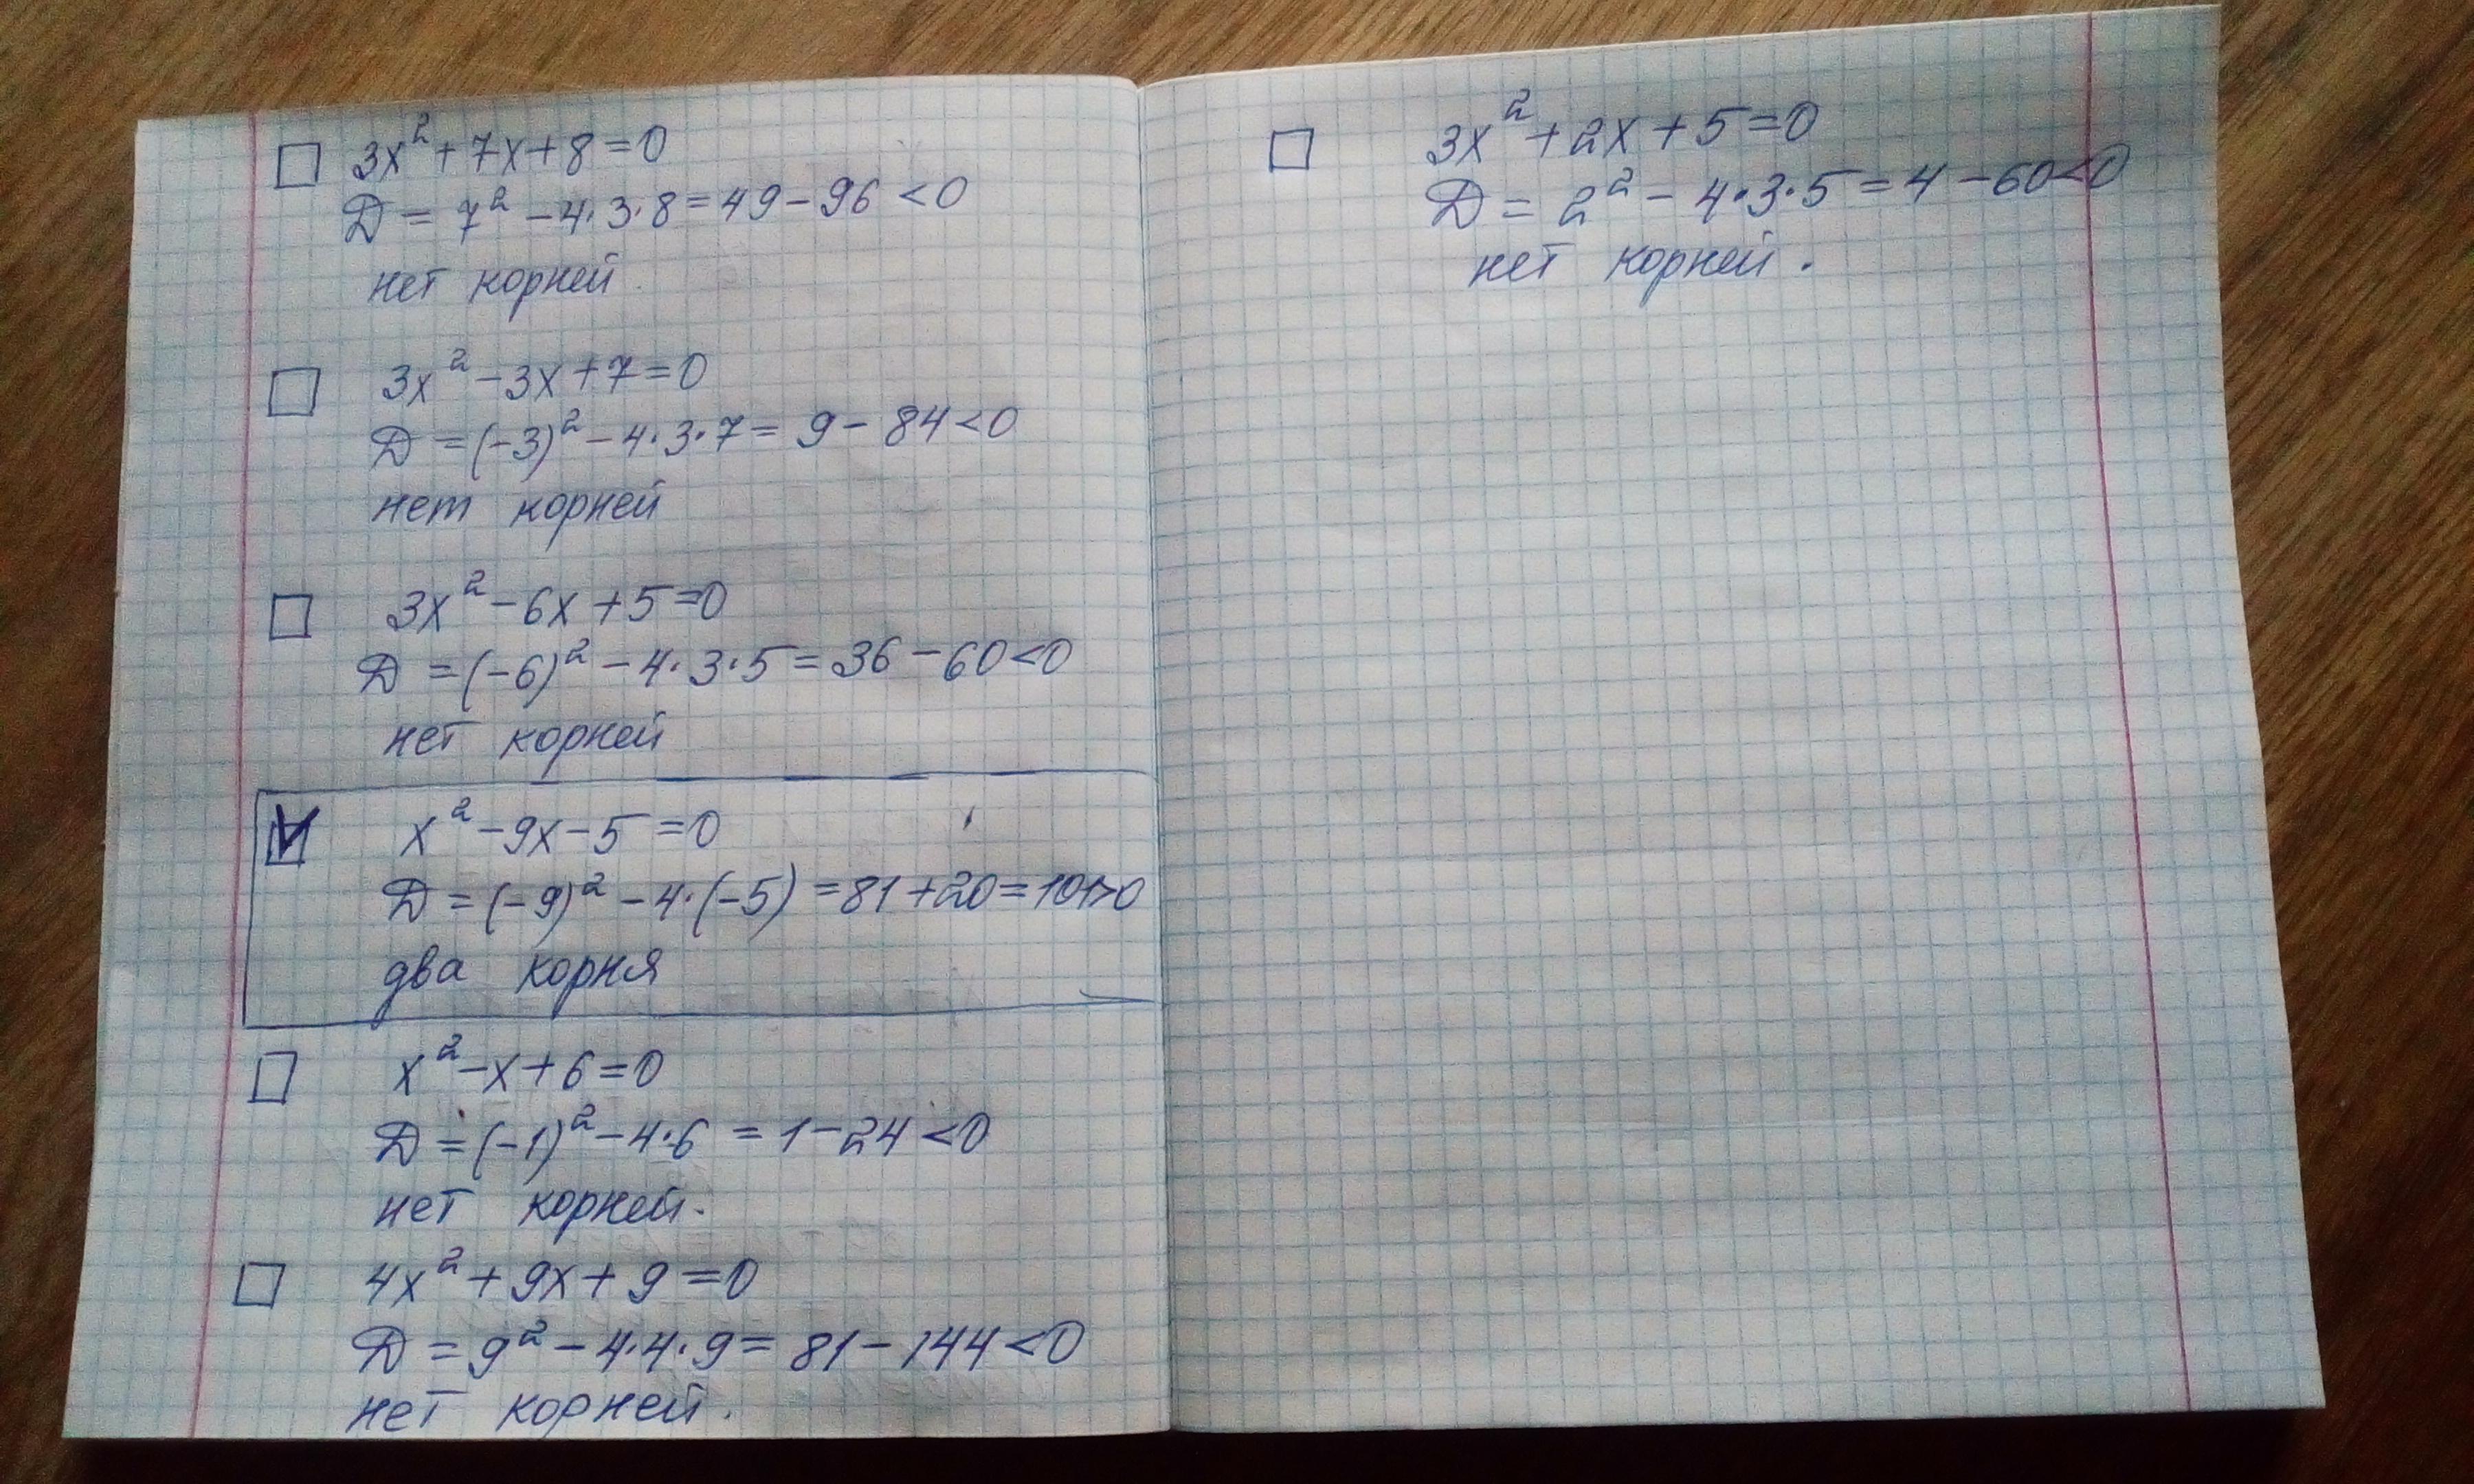 3x² + 7x + 8 = 0
D = 7² - 4·3·8 = 49 - 96 < 0
нет корней
3x² - 3x + 7 = 0
D = (-3)² - 4·3·7 = 9 - 84 < 0
нет корней
3x² - 6x + 5 = 0
D = (-6)² - 4·3·5 = 36 - 60 < 0
нет корней
x² - 9x - 5 = 0
D = (-9)² - 4·(-5) = 81 + 20 = 101 > 0
два корня
x² - x + 6 = 0
D = (-1)² - 4·6 = 1 - 24 < 0
нет корней.
4x² + 9x + 9 = 0
D = 9² - 4·4·9 = 81 - 144 < 0
нет корней.
3x² + 2x + 5 = 0
D = 2² - 4·3·5 = 4 - 60 < 0
нет корней.